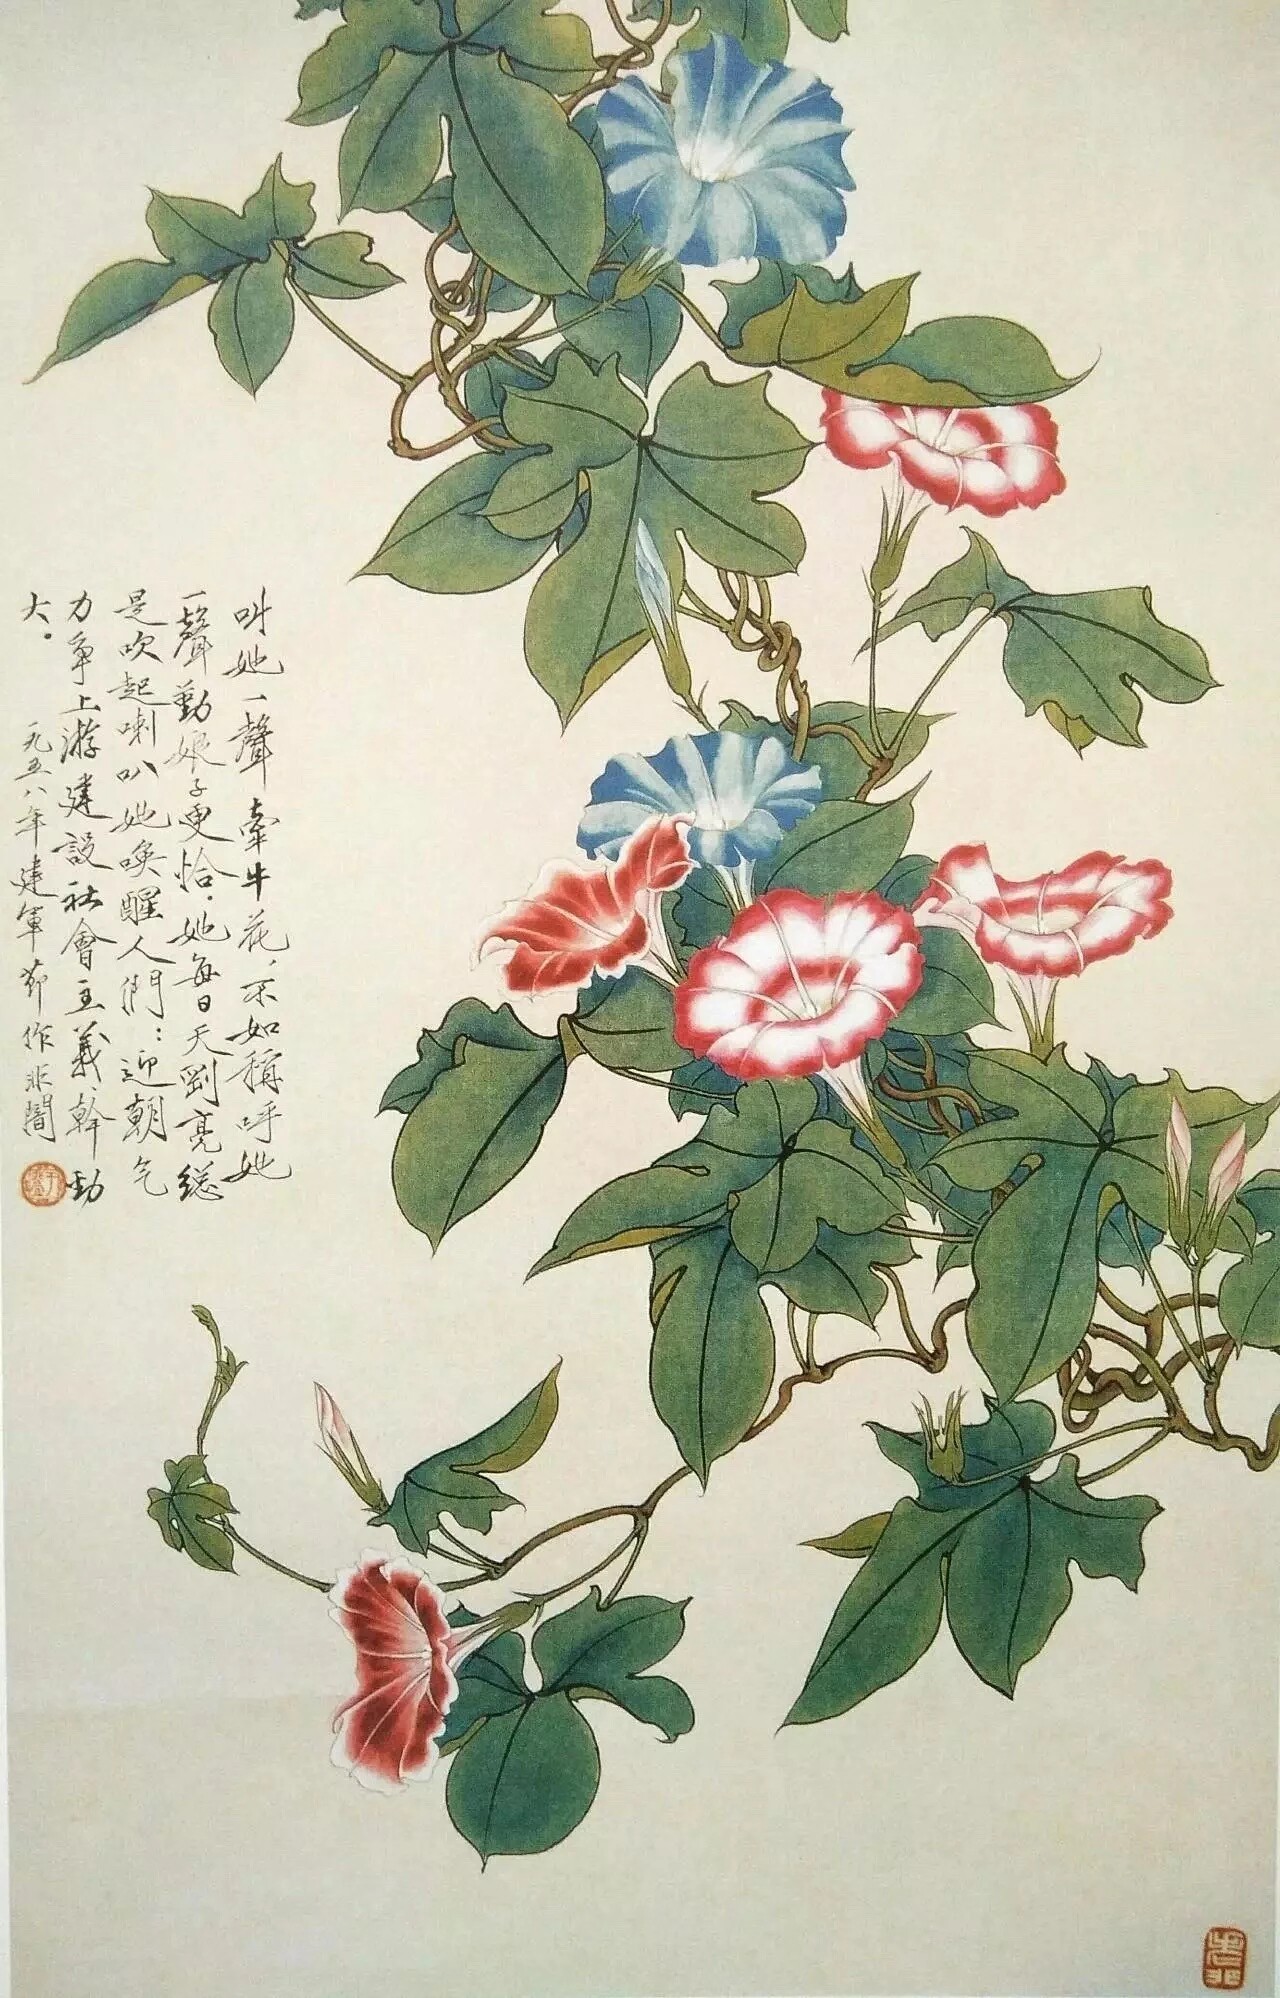 叫她一聲牽牛花，不如稱呼她
一聲勤娘子更恰．她每日天剛亮總
是吹起喇叭她喚醒人們：迎朝气
力争上游建設社會主義、幹勁
大．
一九五八年建軍節作 非闇